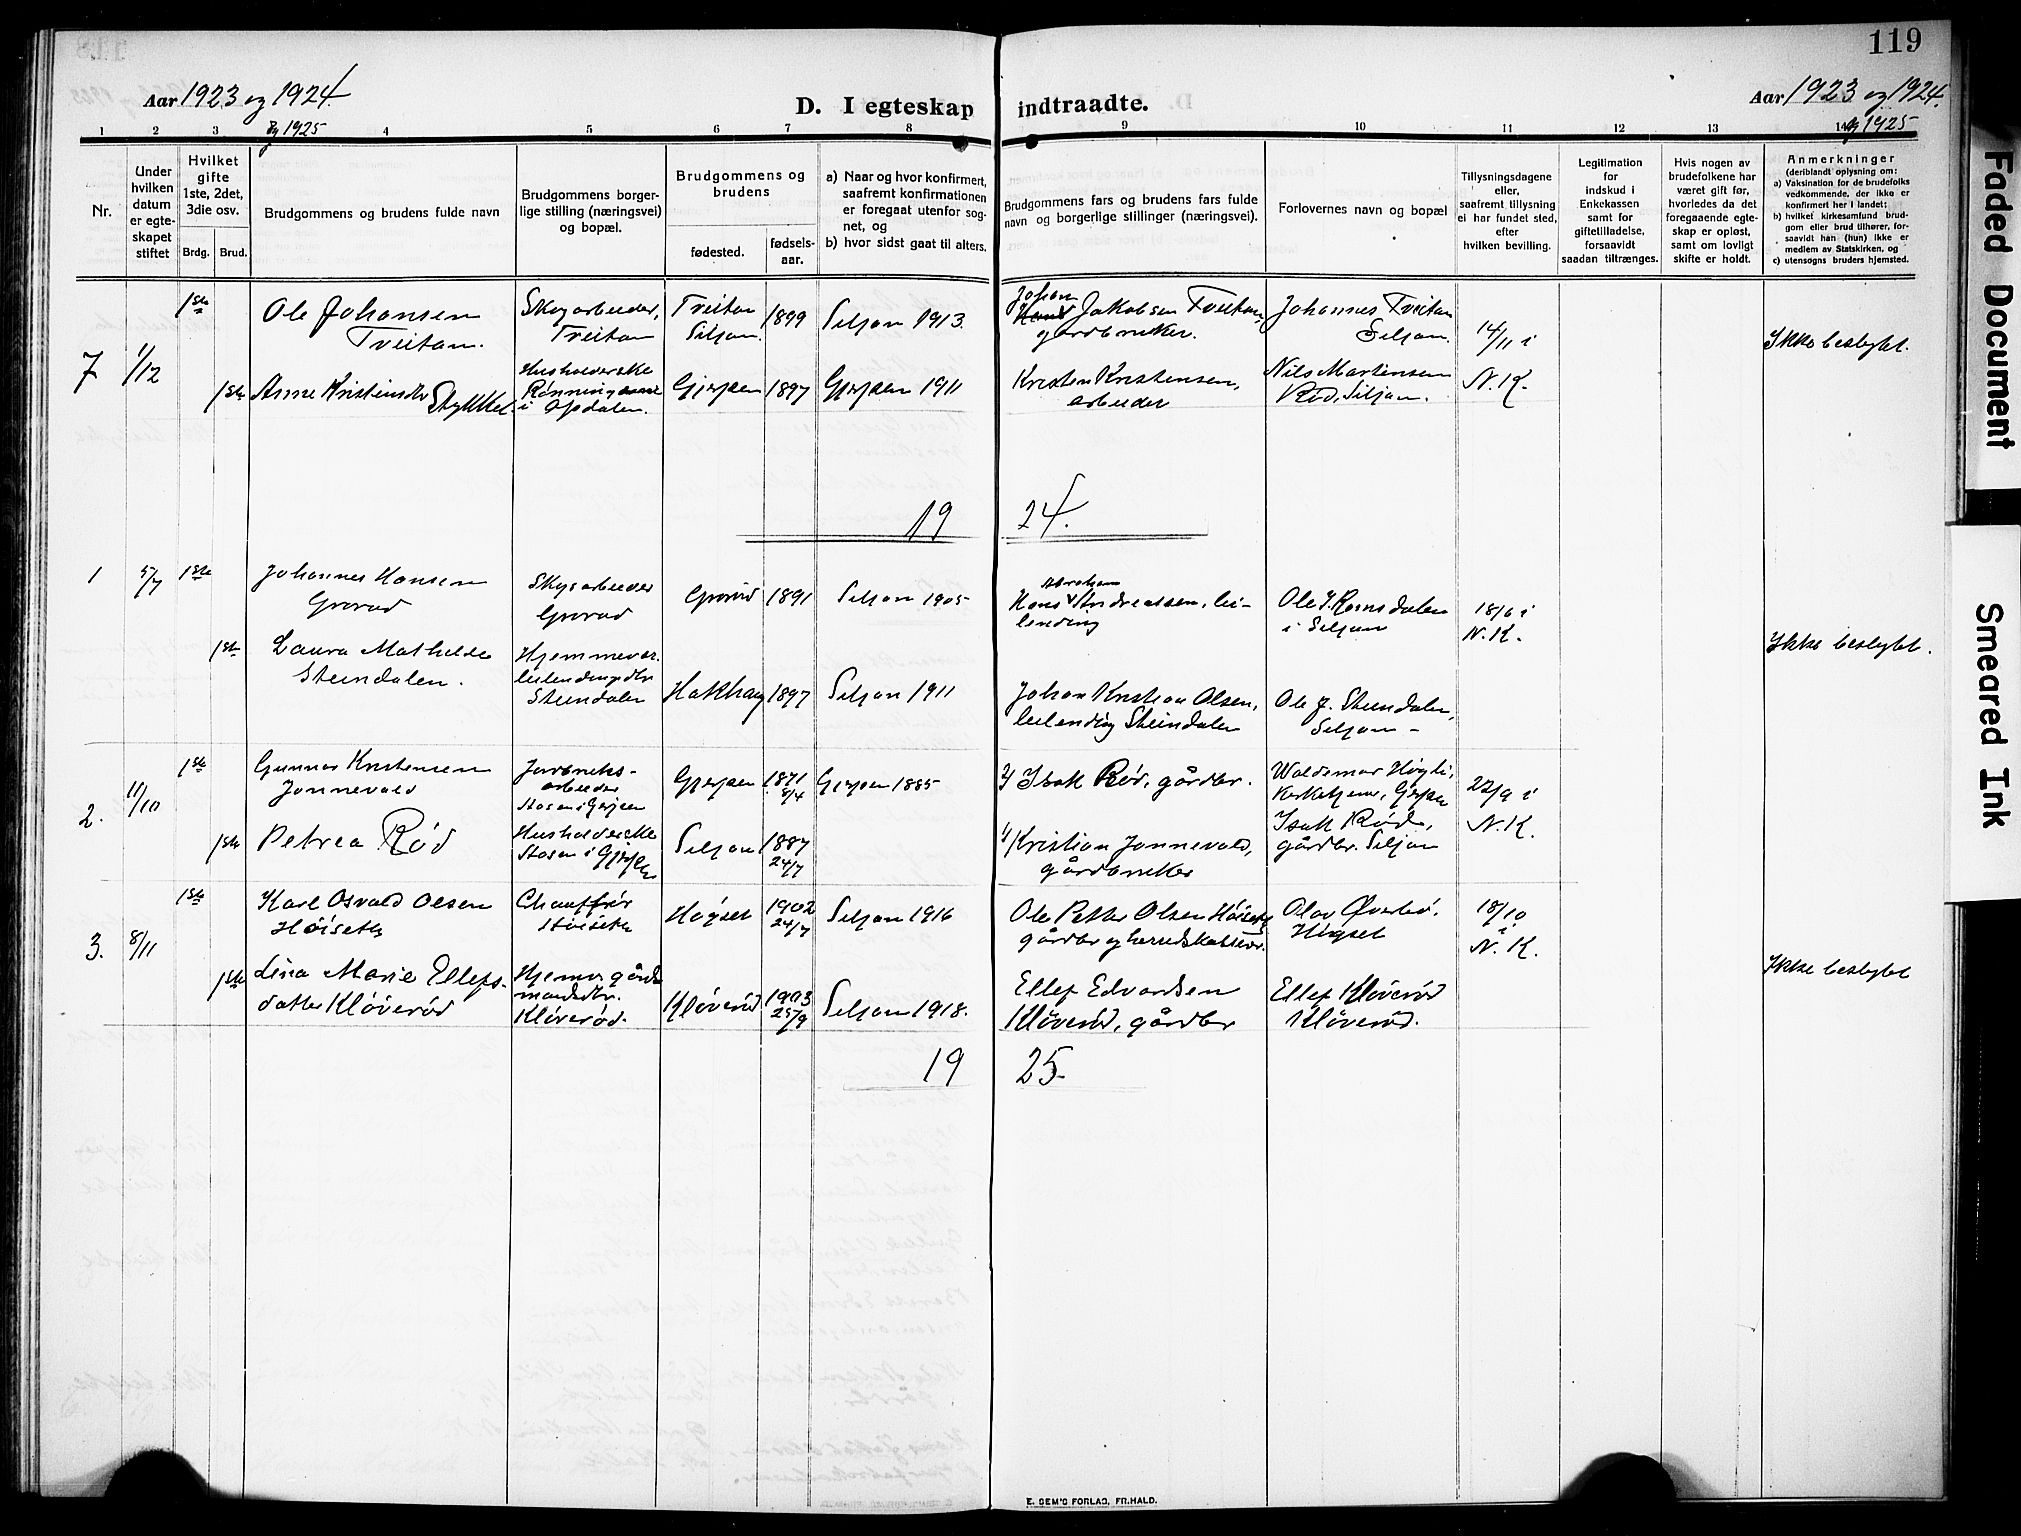 119
Aar 1923 og 1924
og 1925
D. I egteskap indtraadte.
Aar 1923 og 1924.
og 1925
1 2 3 4 5 6 7 8 9 10 11 12 13 14
Nr.
Under hvilken datum er egteskapet stiftet
Hvilket gifte 1ste, 2det, 3die osv.
Brdg. Brud.
Brudgommens og brudens fulde navn
Brudgommens borgerlige stilling (næringsvei) og bopæl.
Brudgommens og brudens
fødested.
fødselsaar.
a) Naar og hvor konfirmert, saafremt konfirmationen er foregaat utenfor sognet, og
b) hvor sidst gaat til alters.
Brudgommens fars og brudens fars fulde navn og borgerlige stillinger (næringsvei).
Forlovernes navn og bopæl
Tillysningsdagene eller, saafremt tillysning ei har fundet sted, efter hvilken bevilling.
Legitimation for indskud i Enkekassen samt for giftetilladelse, forsaavidt saadan tiltrænges.
Hvis nogen av brudefolkene har været gift før, hvorledes da det foregaaende egteskap er opløst, samt om lovligt skifte er holdt.
Anmerkninger
(deriblandt oplysning om:
a) Vaksination for de brudefolks vedkommende, der ikke er konfirmert her i landet:
b) hvilket kirkesamfund brudgom eller brud tilhører, forsaavidt han (hun) ikke er medlem av Statskirken, og
c) utensogns bruders hjemsted.
7 1/12
1ste Ole Johansen Tveitan. Skogarbeider, Tveitan Tveitan Siljan. 1899 Siljan 1913. Johan Jakobsen Tveitan, gårdbruker. Johannes Tveitan Siljan. 14/11 i N.K. Ikke beslegtet.
1ste Anne Kristensdtr Stykket. Husholderske Rønningen i Opdalen. Gjerpen 1897 Gjerpen 1911 Kristen Kristensen, arbeider Nils Martinsen Rød, Siljan.
19 24.
1 5/7 1ste Johannes Hansen Grorud Skogsarbeider Grorud Grorud 1891 Siljan 1905 Hans Abraham Andreassen, leilending Ole J. Ramsdalen i Siljan 18/6 i N.K.
1ste Laura Mathilde Steindalen. Hjemmevær. leilendingsdtr Steindalen Hakkhaug 1897 Siljan 1911 Johan Kristian Olsen, leilending Steindalen Ole J. Steindalen, Siljan - Ikke beslegtet.
2. 11/10 1ste Gunnar Kristensen Jonnevald Jordbruksarbeider Stosen i Gjerpen Gjerpen 1871 8/4 Gjerpen 1885 2) Isak Rød, gårdbr. Waldemar Høgli, Kirketjener, Gjerpen 22/9 i N.K.
1ste Petrea Rød Husholderske Stosen i Gjerpen Siljan 1887 24/7 1) Kristian Jonnevald, gårdbruker Isak Rød, gårdbr. Siljan
3. 8/11 1ste Karl Osvald Olsen Høiseth Chauffør Høiseth Høgset 1902 24/7 Siljan 1916 Ole Petter Olsen Høiseth gårdbr og herredskasserer. Olav Øverbø, Høgset 18/10 i N.K.
1ste Lina Marie Ellefsdatter Kløverød Hjemme gårdmandsdtr. Kløverød. Kløverød 1903 25/9 Siljan 1918. Ellef Edvardsen Kløverød, gårdbr Ellef Kløverød Kløverød. Ikke beslegtet
19 25.
E. SEM'S FORLAG, FR.HALD.
Faded Document
Smeared Ink